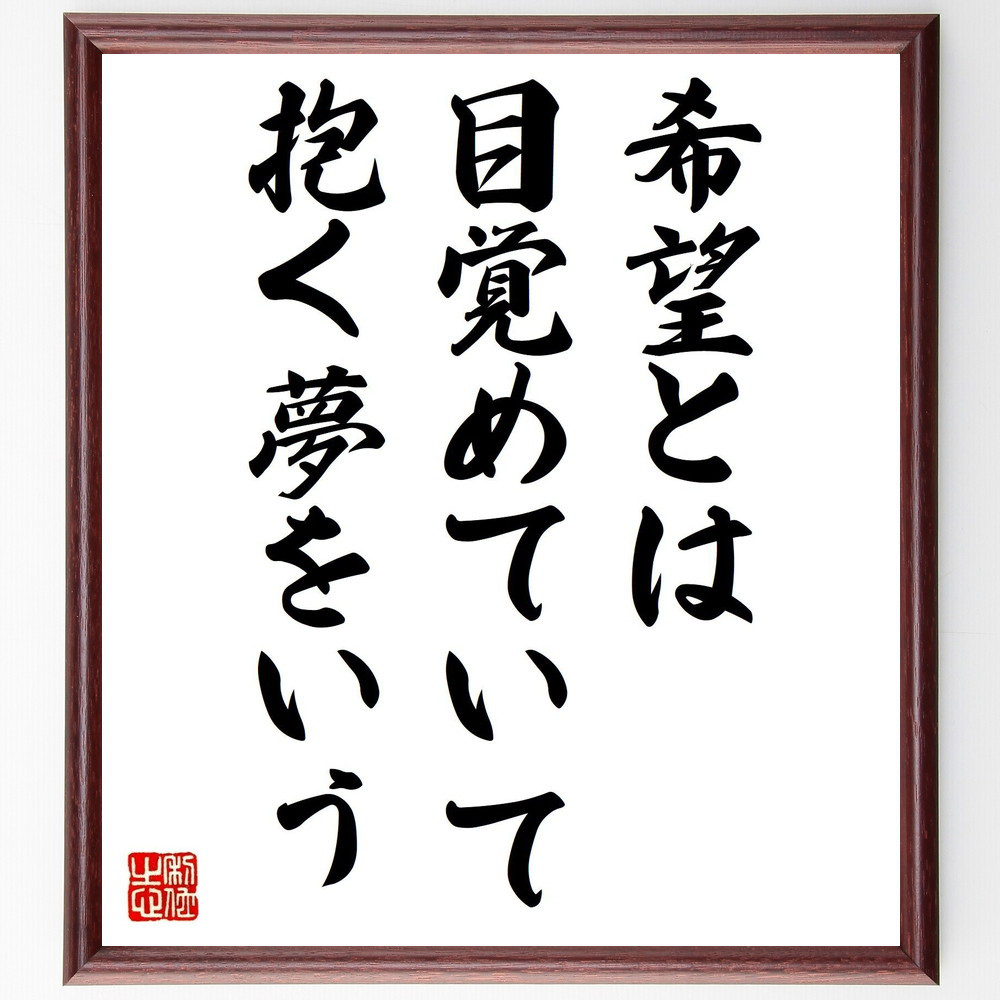 希望とは
目覚めていて
抱く夢をいう